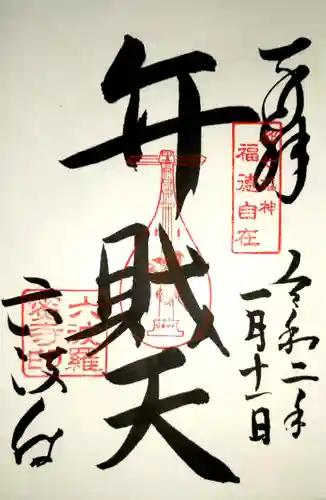 奉拝
福徳自在
令和二年
一月十一日
弁財天
六波羅
密寺印
六波羅